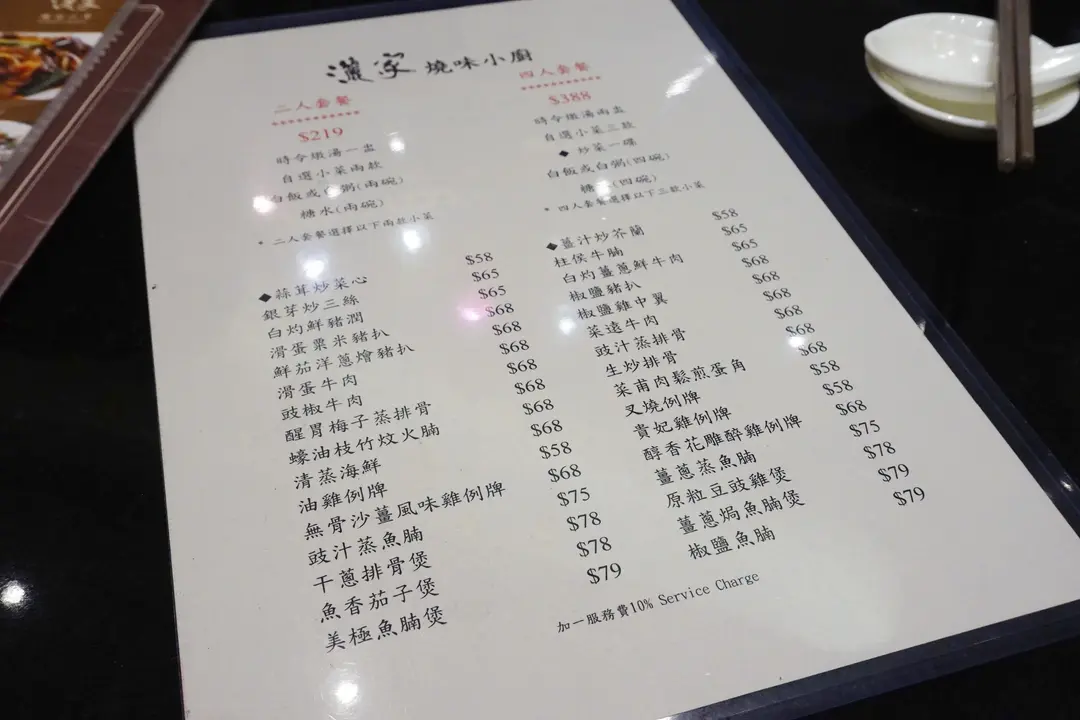 漢家 燒味小廚
二人套餐
$219
時令燉湯一盅
自選小菜兩款
白飯或白粥(兩碗)
糖水(兩碗)
* 二人套餐選擇以下兩款小菜
四人套餐
$388
時令燉湯兩盅
自選小菜三款
◆ 炒菜一碟
白飯或白粥(四碗)
糖水(四碗)
* 四人套餐選擇以下三款小菜
◆蒜茸炒菜心 $58
銀芽炒三絲 $65
白灼鮮豬潤 $65
滑蛋粟米豬扒 $68
鮮茄洋蔥燴豬扒 $68
滑蛋牛肉 $68
豉椒牛肉 $68
醒胃梅子蒸排骨 $68
蠔油枝竹炆火腩 $68
清蒸海鮮 $68
油雞例牌 $58
無骨沙薑風味雞例牌 $68
豉汁蒸魚腩 $75
干蔥排骨煲 $78
魚香茄子煲 $78
美極魚腩煲 $79
◆薑汁炒芥蘭 $58
柱侯牛腩 $65
白灼薑蔥鮮牛肉 $65
椒鹽豬扒 $68
椒鹽雞中翼 $68
菜遠牛肉 $68
豉汁蒸排骨 $68
生炒排骨 $68
菜甫肉鬆煎蛋角 $68
叉燒例牌 $58
貴妃雞例牌 $58
醇香花雕醉雞例牌 $68
薑蔥蒸魚腩 $75
原粒豆豉雞煲 $78
薑蔥焗魚腩煲 $79
椒鹽魚腩 $79
加一服務費10% Service Charge